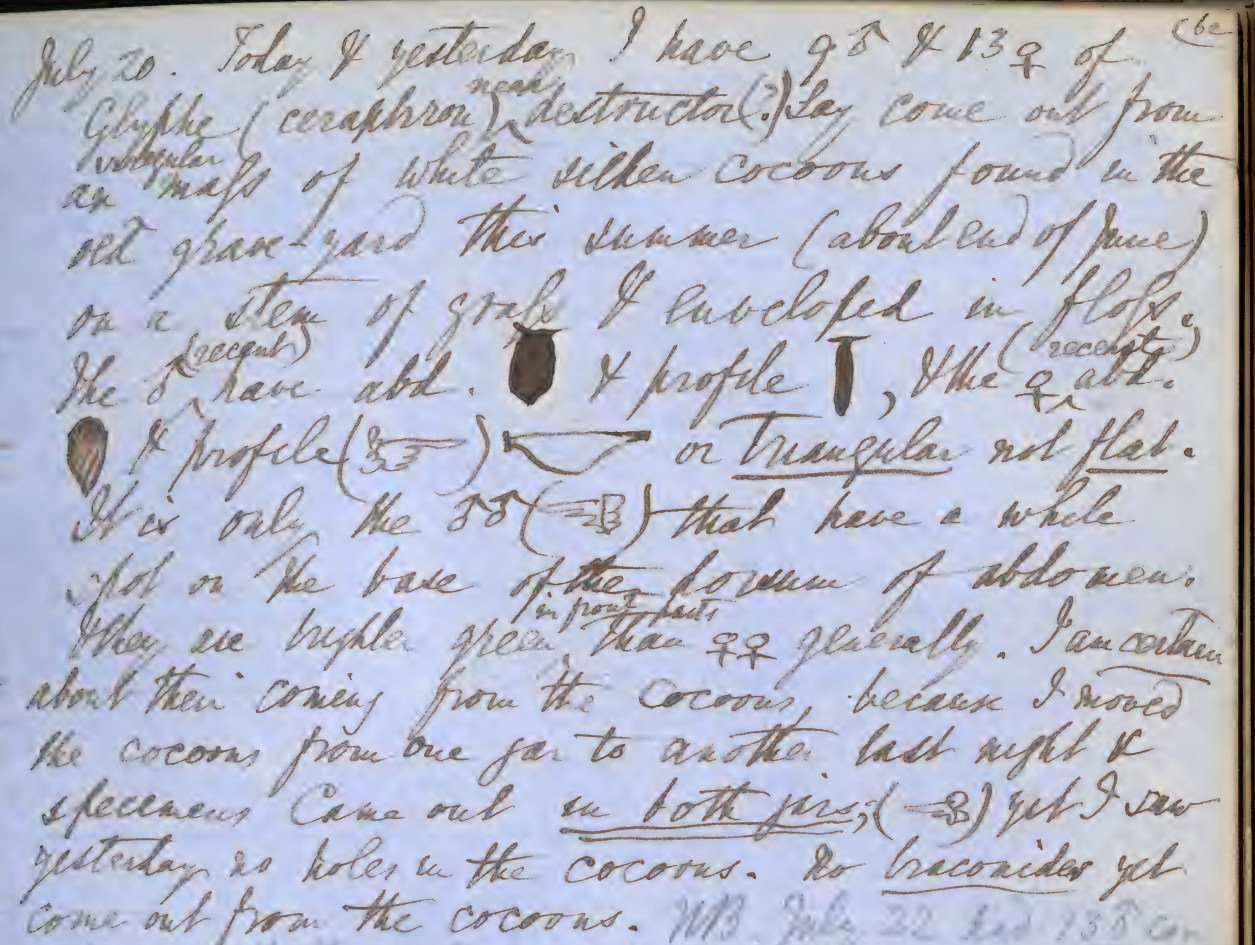 July 20. Today & yesterday I have 9♂ & 13♀ of
Glyphe (ceraphron) near destructor (?) Say come out from
an irregular maſs of white silken cocoons found in the
old grave-yard this summer (about end of June)
on a stem of graſs & enveloped in floſs.
The ♂ (recent) have abd. & profile , & the ♀ (recent) abd.
& profile ( ) or triangular not flat.
It is only the ♂♂ ( ) that have a white
spot on the base of the dorsum of abdomen.
They are brighter green in front parts than ♀♀ generally. I am certain
about their coming from the cocoons, because I moved
the cocoons from one jar to another last night &
specimens came out in both jars; ( ) yet I saw
yesterday no holes in the cocoons. No braconides yet
come out from the cocoons. NB. July 22 had 13♂